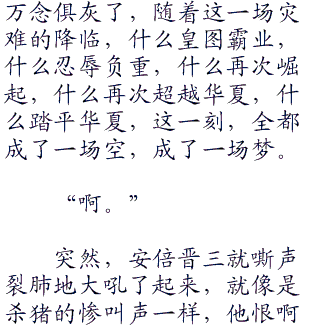 万念俱灰了，随着这一场灾
难的降临，什么皇图霸业，
什么忍辱负重，什么再次崛
起，什么再次超越华夏，什
么踏平华夏，这一刻，全都
成了一场空，成了一场梦。
“啊。”
突然，安倍晋三就嘶声
裂肺地大吼了起来，就像是
杀猪的惨叫声一样，他恨啊